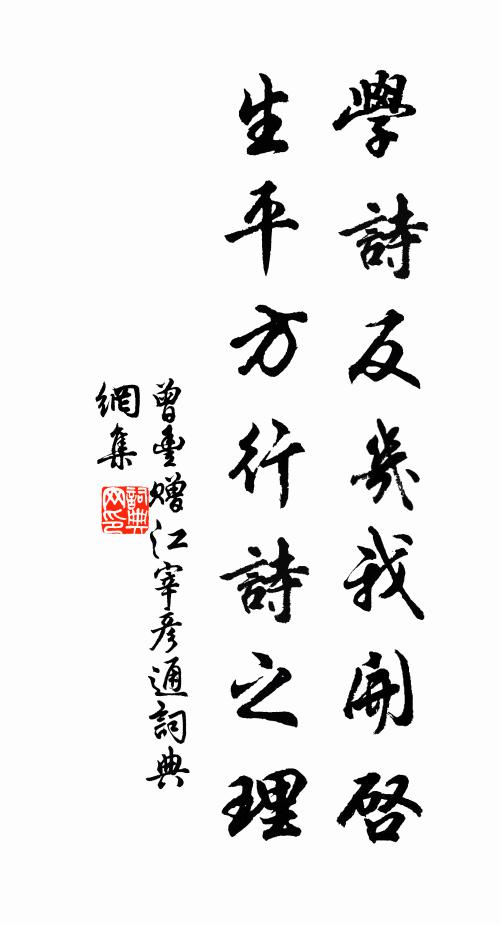 學詩反幾我開啓
生平方行詩之理
曾豐贈江宰彦通詞典
網集
詞典
网印